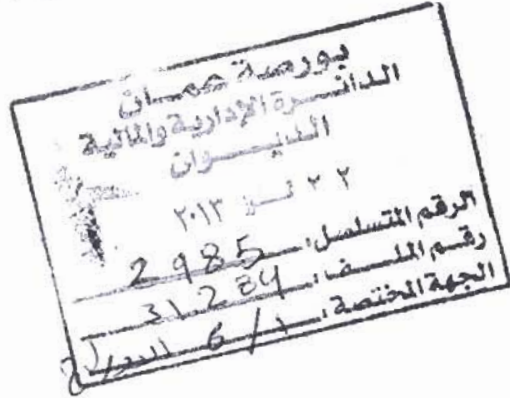 بورصة عمان
الدائرة الإدارية والمالية
الديوان
٢٢ ٢٠١٣
الرقم المتسلسل: 2985
رقم الملف: 31284
الجهة المختصة: